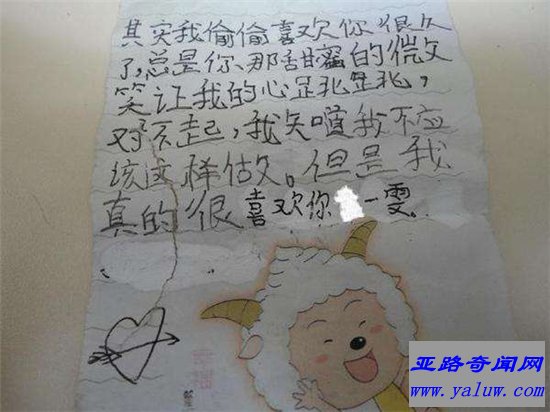 其实我偷偷喜欢你很久
了,总是你、那甜蜜的微
笑让我的心
对不起,我矢噵我不应
该这样做。但是我
真的很喜欢你 一雯.
亚路奇闻网
www.yaluw.com